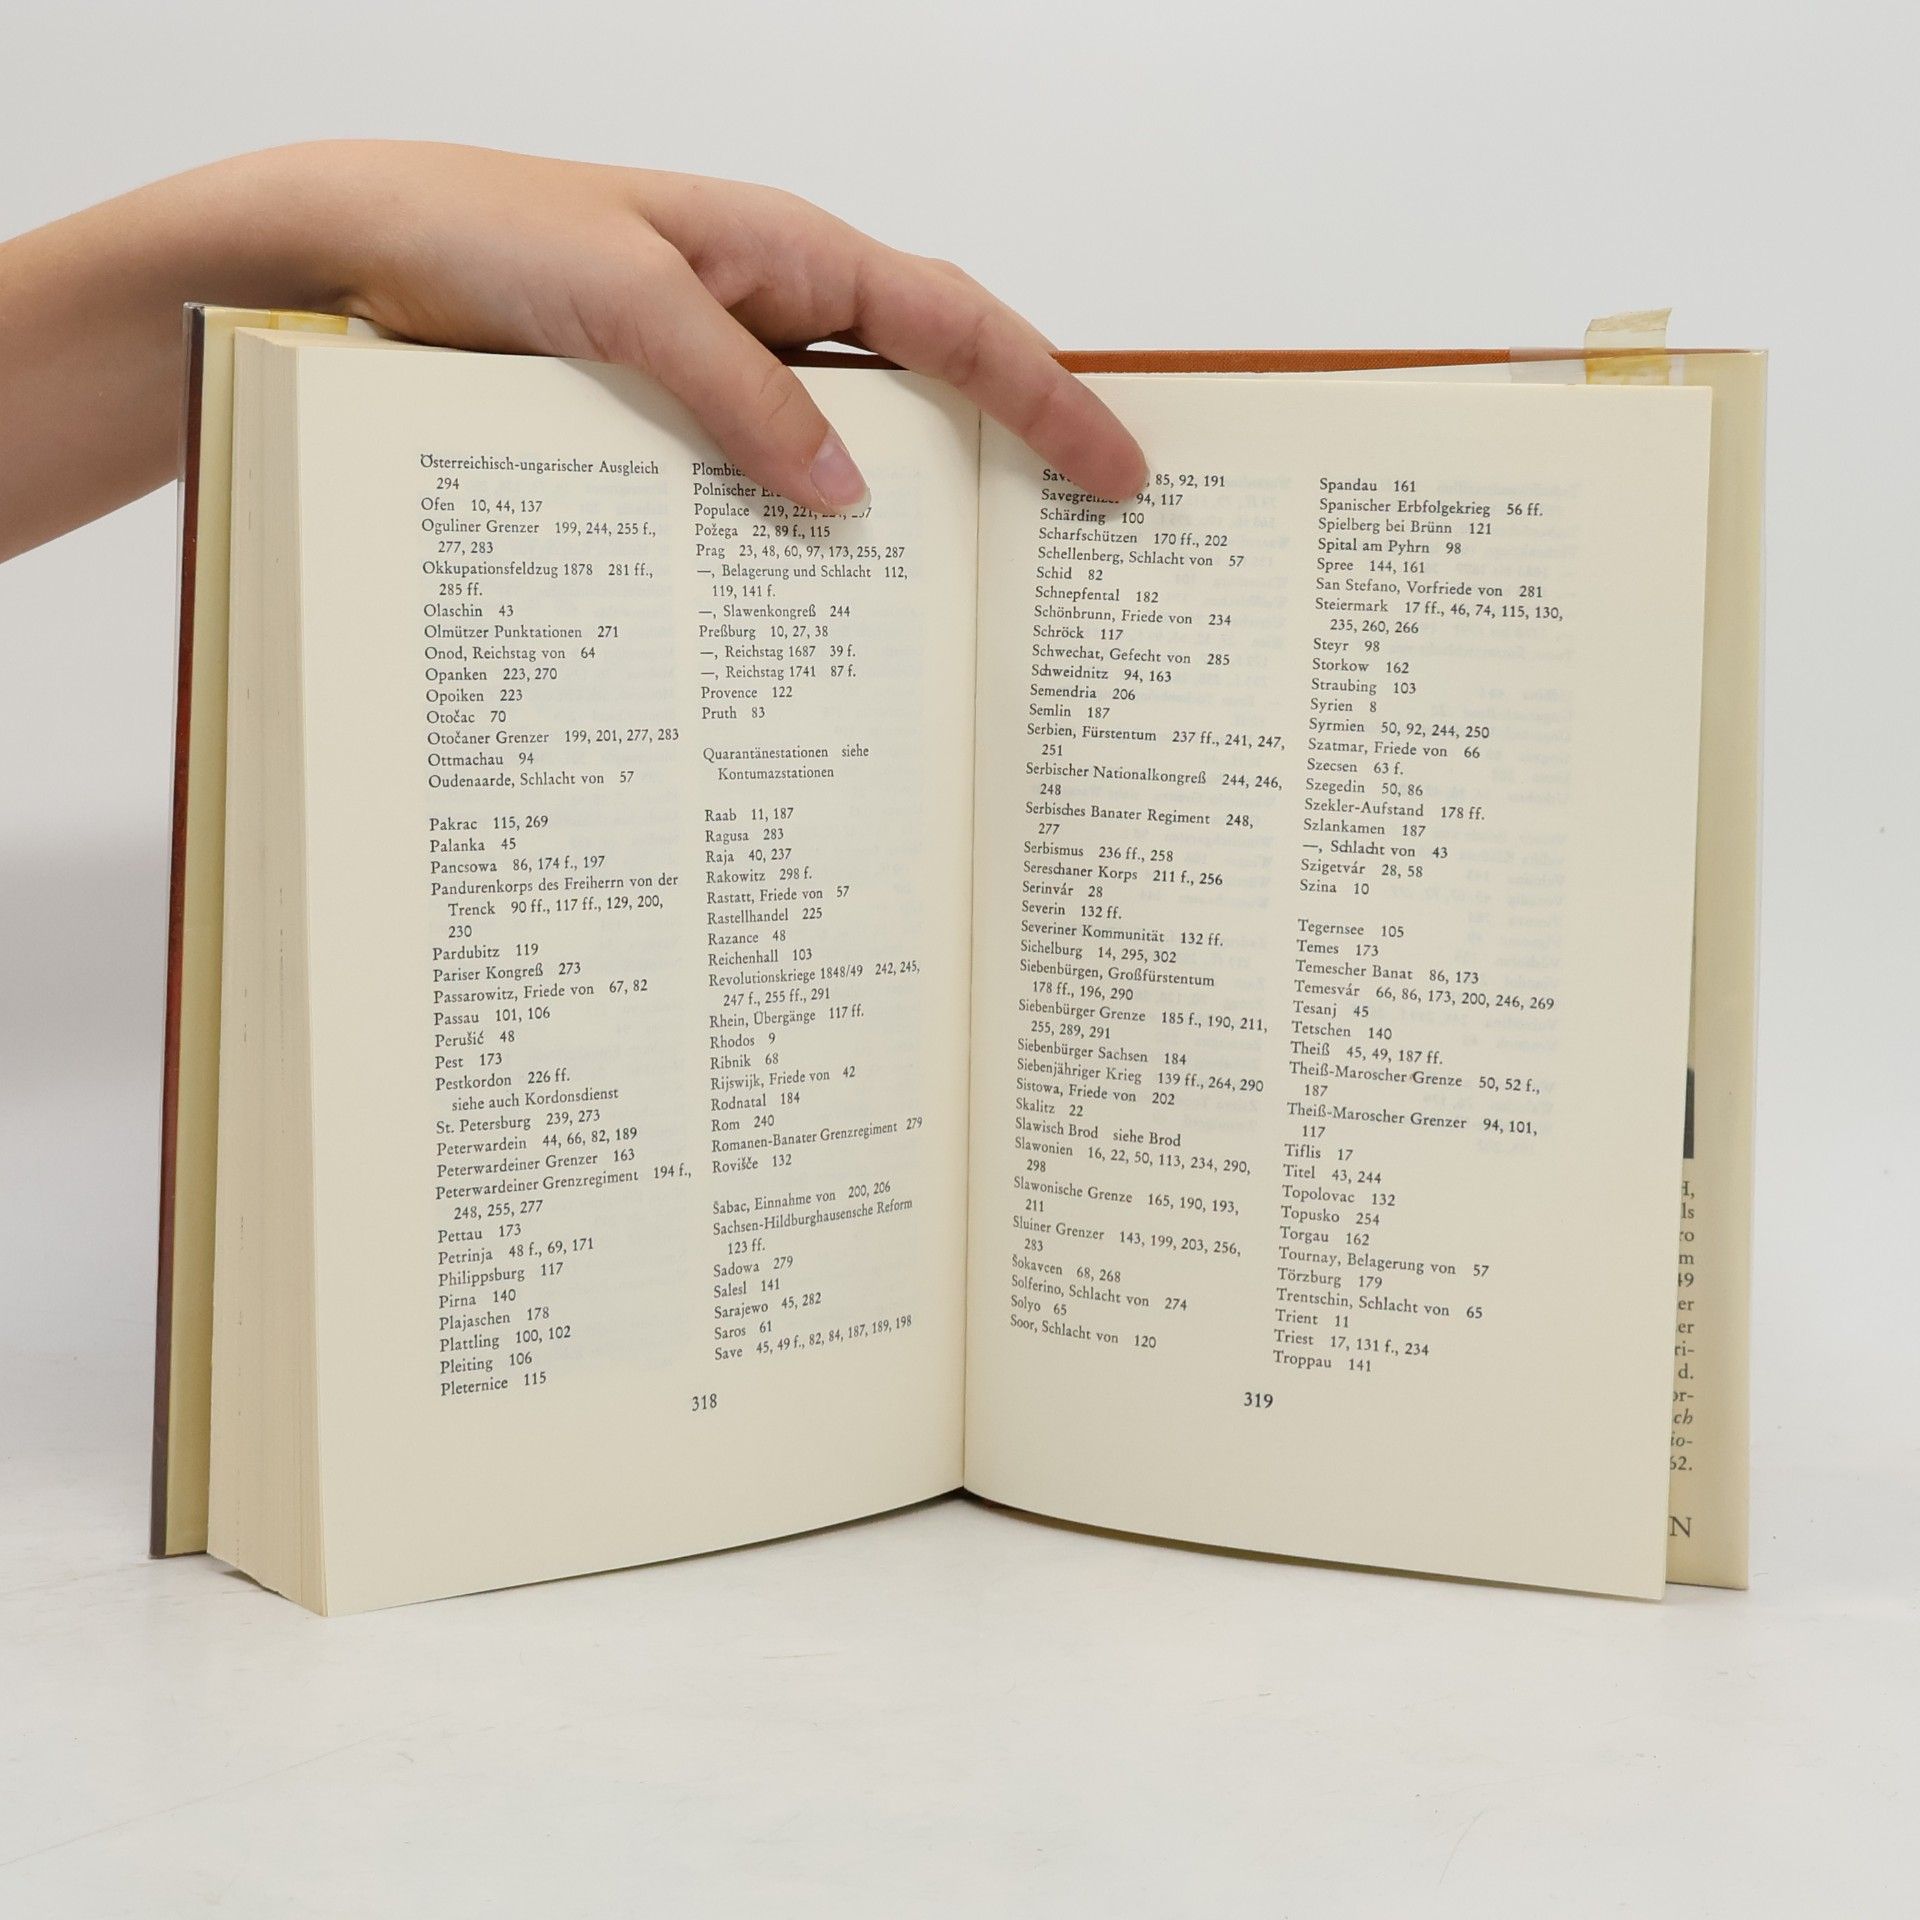 Österreichisch-ungarischer Ausgleich
294
Ofen 10, 44, 137
Oguliner Grenzer 199, 244, 255 f.,
277, 283
Okkupationsfeldzug 1878 281 ff.,
285 ff.
Olaschin 43
Olmützer Punktationen 271
Onod, Reichstag von 64
Opanken 223, 270
Opoiken 223
Otočac 70
Otočaner Grenzer 199, 201, 277, 283
Ottmachau 94
Oudenaarde, Schlacht von 57
Pakrac 115, 269
Palanka 45
Pancsowa 86, 174 f., 197
Pandurenkorps des Freiherrn von der
Trenck 90 ff., 117 ff., 129, 200,
230
Pardubitz 119
Pariser Kongreß 273
Passarowitz, Friede von 67, 82
Passau 101, 106
Perušić 48
Pest 173
Pestkordon 226 ff.
siehe auch Kordonsdienst
St. Petersburg 239, 273
Peterwardein 44, 66, 82, 189
Peterwardeiner Grenzer 163
Peterwardeiner Grenzregiment 194 f.,
248, 255, 277
Pettau 173
Petrinja 48 f., 69, 171
Philippsburg 117
Pirna 140
Plajaschen 178
Plattling 100, 102
Pleiting 106
Pleternice 115
Polnischer
Populace 219, 221,
Požega 22, 89 f., 115
Prag 23, 48, 60, 97, 173, 255, 287
—, Belagerung und Schlacht 112,
119, 141 f.
—, Slawenkongreß 244
Preßburg 10, 27, 38
—, Reichstag 1687 39 f.
—, Reichstag 1741 87 f.
Provence 122
Pruth 83
Quarantänestationen siehe
Kontumazstationen
Raab 11, 187
Ragusa 283
Raja 40, 237
Rakowitz 298 f.
Rastatt, Friede von 57
Rastellhandel 225
Razance 48
Reichenhall 103
Revolutionskriege 1848/49 242, 245,
247 f., 255 ff., 291
Rhein, Übergänge 117 ff.
Rhodos 9
Ribnik 68
Rijswijk, Friede von 42
Rodnatal 184
Rom 240
Romanen-Banater Grenzregiment 279
Rovišče 132
Šabac, Einnahme von 200, 206
Sachsen-Hildburghausensche Reform
123 ff.
Sadowa 279
Salesl 141
Sarajewo 45, 282
Saros 61
Save 45, 49 f., 82, 84, 187, 189, 198
318
85, 92, 191
94, 117
Schärding 100
Scharfschützen 170 ff., 202
Schellenberg, Schlacht von 57
Schid 82
Schnepfental 182
Schönbrunn, Friede von 234
Schröck 117
Schwechat, Gefecht von 285
Schweidnitz 94, 163
Semendria 206
Semlin 187
Serbien, Fürstentum 237 ff., 241, 247,
251
Serbischer Nationalkongreß 244, 246,
248
Serbisches Banater Regiment 248,
277
Serbismus 236 ff., 258
Sereschaner Korps 211 f., 256
Serinvár 28
Severin 132 ff.
Severiner Kommunität 132 ff.
Sichelburg 14, 295, 302
Siebenbürgen, Großfürstentum
178 ff., 196, 290
Siebenbürger Grenze 185 f., 190, 211,
255, 289, 291
Siebenbürger Sachsen 184
Siebenjähriger Krieg 139 ff., 264, 290
Sistowa, Friede von 202
Skalitz 22
Slawisch Brod siehe Brod
Slawonien 16, 22, 50, 113, 234, 290,
298
Slawonische Grenze 165, 190, 193,
211
Sluiner Grenzer 143, 199, 203, 256,
283
Šokavcen 68, 268
Solferino, Schlacht von 274
Solyo 65
Soor, Schlacht von 120
Spandau 161
Spanischer Erbfolgekrieg 56 ff.
Spielberg bei Brünn 121
Spital am Pyhrn 98
Spree 144, 161
San Stefano, Vorfriede von 281
Steiermark 17 ff., 46, 74, 115, 130,
235, 260, 266
Steyr 98
Storkow 162
Straubing 103
Syrien 8
Syrmien 50, 92, 244, 250
Szatmar, Friede von 66
Szecsen 63 f.
Szegedin 50, 86
Szekler-Aufstand 178 ff.
Szlankamen 187
—, Schlacht von 43
Szigetvár 28, 58
Szina 10
Tegernsee 105
Temes 173
Temescher Banat 86, 173
Temesvár 66, 86, 173, 200, 246, 269
Tesanj 45
Tetschen 140
Theiß 45, 49, 187 ff.
Theiß-Maroscher Grenze 50, 52 f.,
187
Theiß-Maroscher Grenzer 94, 101,
117
Tiflis 17
Titel 43, 244
Topolovac 132
Topusko 254
Torgau 162
Tournay, Belagerung von 57
Törzburg 179
Trentschin, Schlacht von 65
Trient 11
Triest 17, 131 f., 234
Troppau 141
319